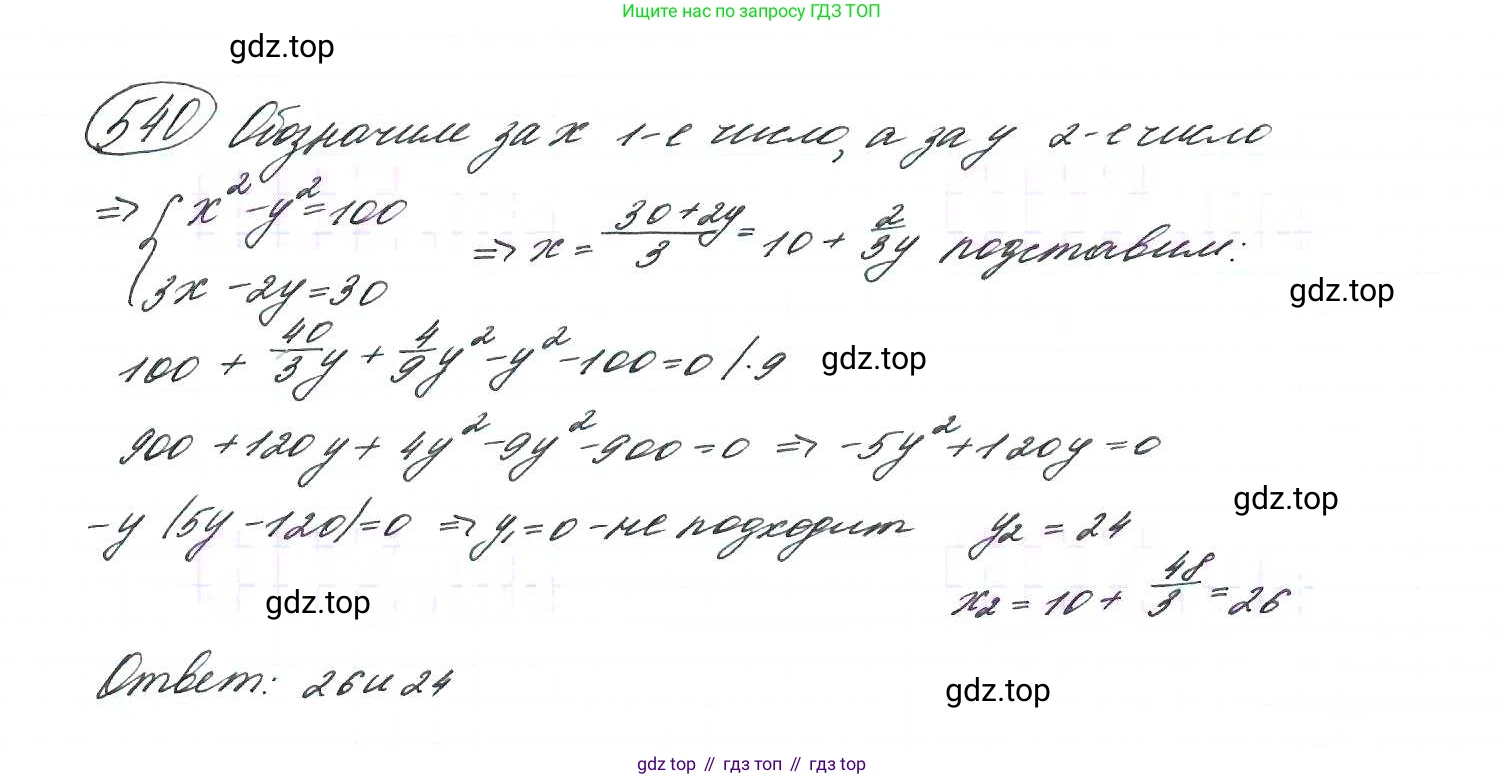 Ищите нас по запросу ГДЗ ТОП
gdz.top
540 Обозначим за x 1-е число, а за y 2-е число
⇒ { x² - y² = 100
3x - 2y = 30
⇒ x = (30+2y)/3 = 10 + 2/3 y подставим:
gdz.top
100 + 40/3 y + 4/9 y² - y² - 100 = 0 |·9
gdz.top
900 + 120y + 4y² - 9y² - 900 = 0 ⇒ -5y² + 120y = 0
gdz.top
-y (5y - 120) = 0 ⇒ y₁ = 0 - не подходит y₂ = 24
gdz.top
x₂ = 10 + 48/3 = 26
Ответ: 26 и 24
gdz.top
gdz top // гдз топ // гдз top